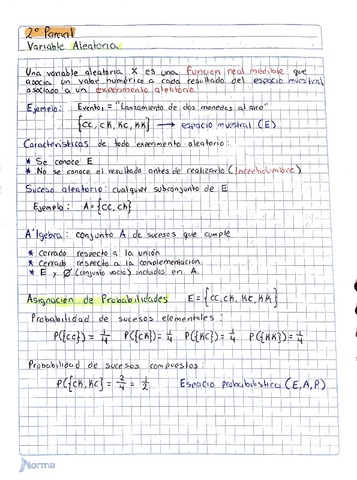 2º Parcial
Variable Aleatoria
Una variable aleatoria X es una función real medible que
asocia un valor numérico a cada resultado del espacio muestral
asociado a un experimento aleatorio.
Ejemplo: Evento₁ = "Lanzamiento de dos monedas al aire"
{CC, CK, KC, KK} → espacio muestral (E)
Características de todo experimento aleatorio:
* Se conoce E
* No se conoce el resultado antes de realizarlo (Incertidumbre)
Suceso aleatorio: cualquier subconjunto de E
Ejemplo: A = {CC, CK}
Álgebra: conjunto A de sucesos que cumple
* Cerrado respecto a la unión
* Cerrado respecto a la complementación.
* E y Ø (conjunto vacío) incluidos en A.
Asignación de Probabilidades E = {CC, CK, KC, KK}
Probabilidad de sucesos elementales:
P({CC}) = 1/4 P({CK}) = 1/4 P({KC}) = 1/4 P({KK}) = 1/4
Probabilidad de sucesos compuestos:
P({CK, KC}) = 2/4 = 1/2 Espacio probabilístico (E, A, P)
Norma